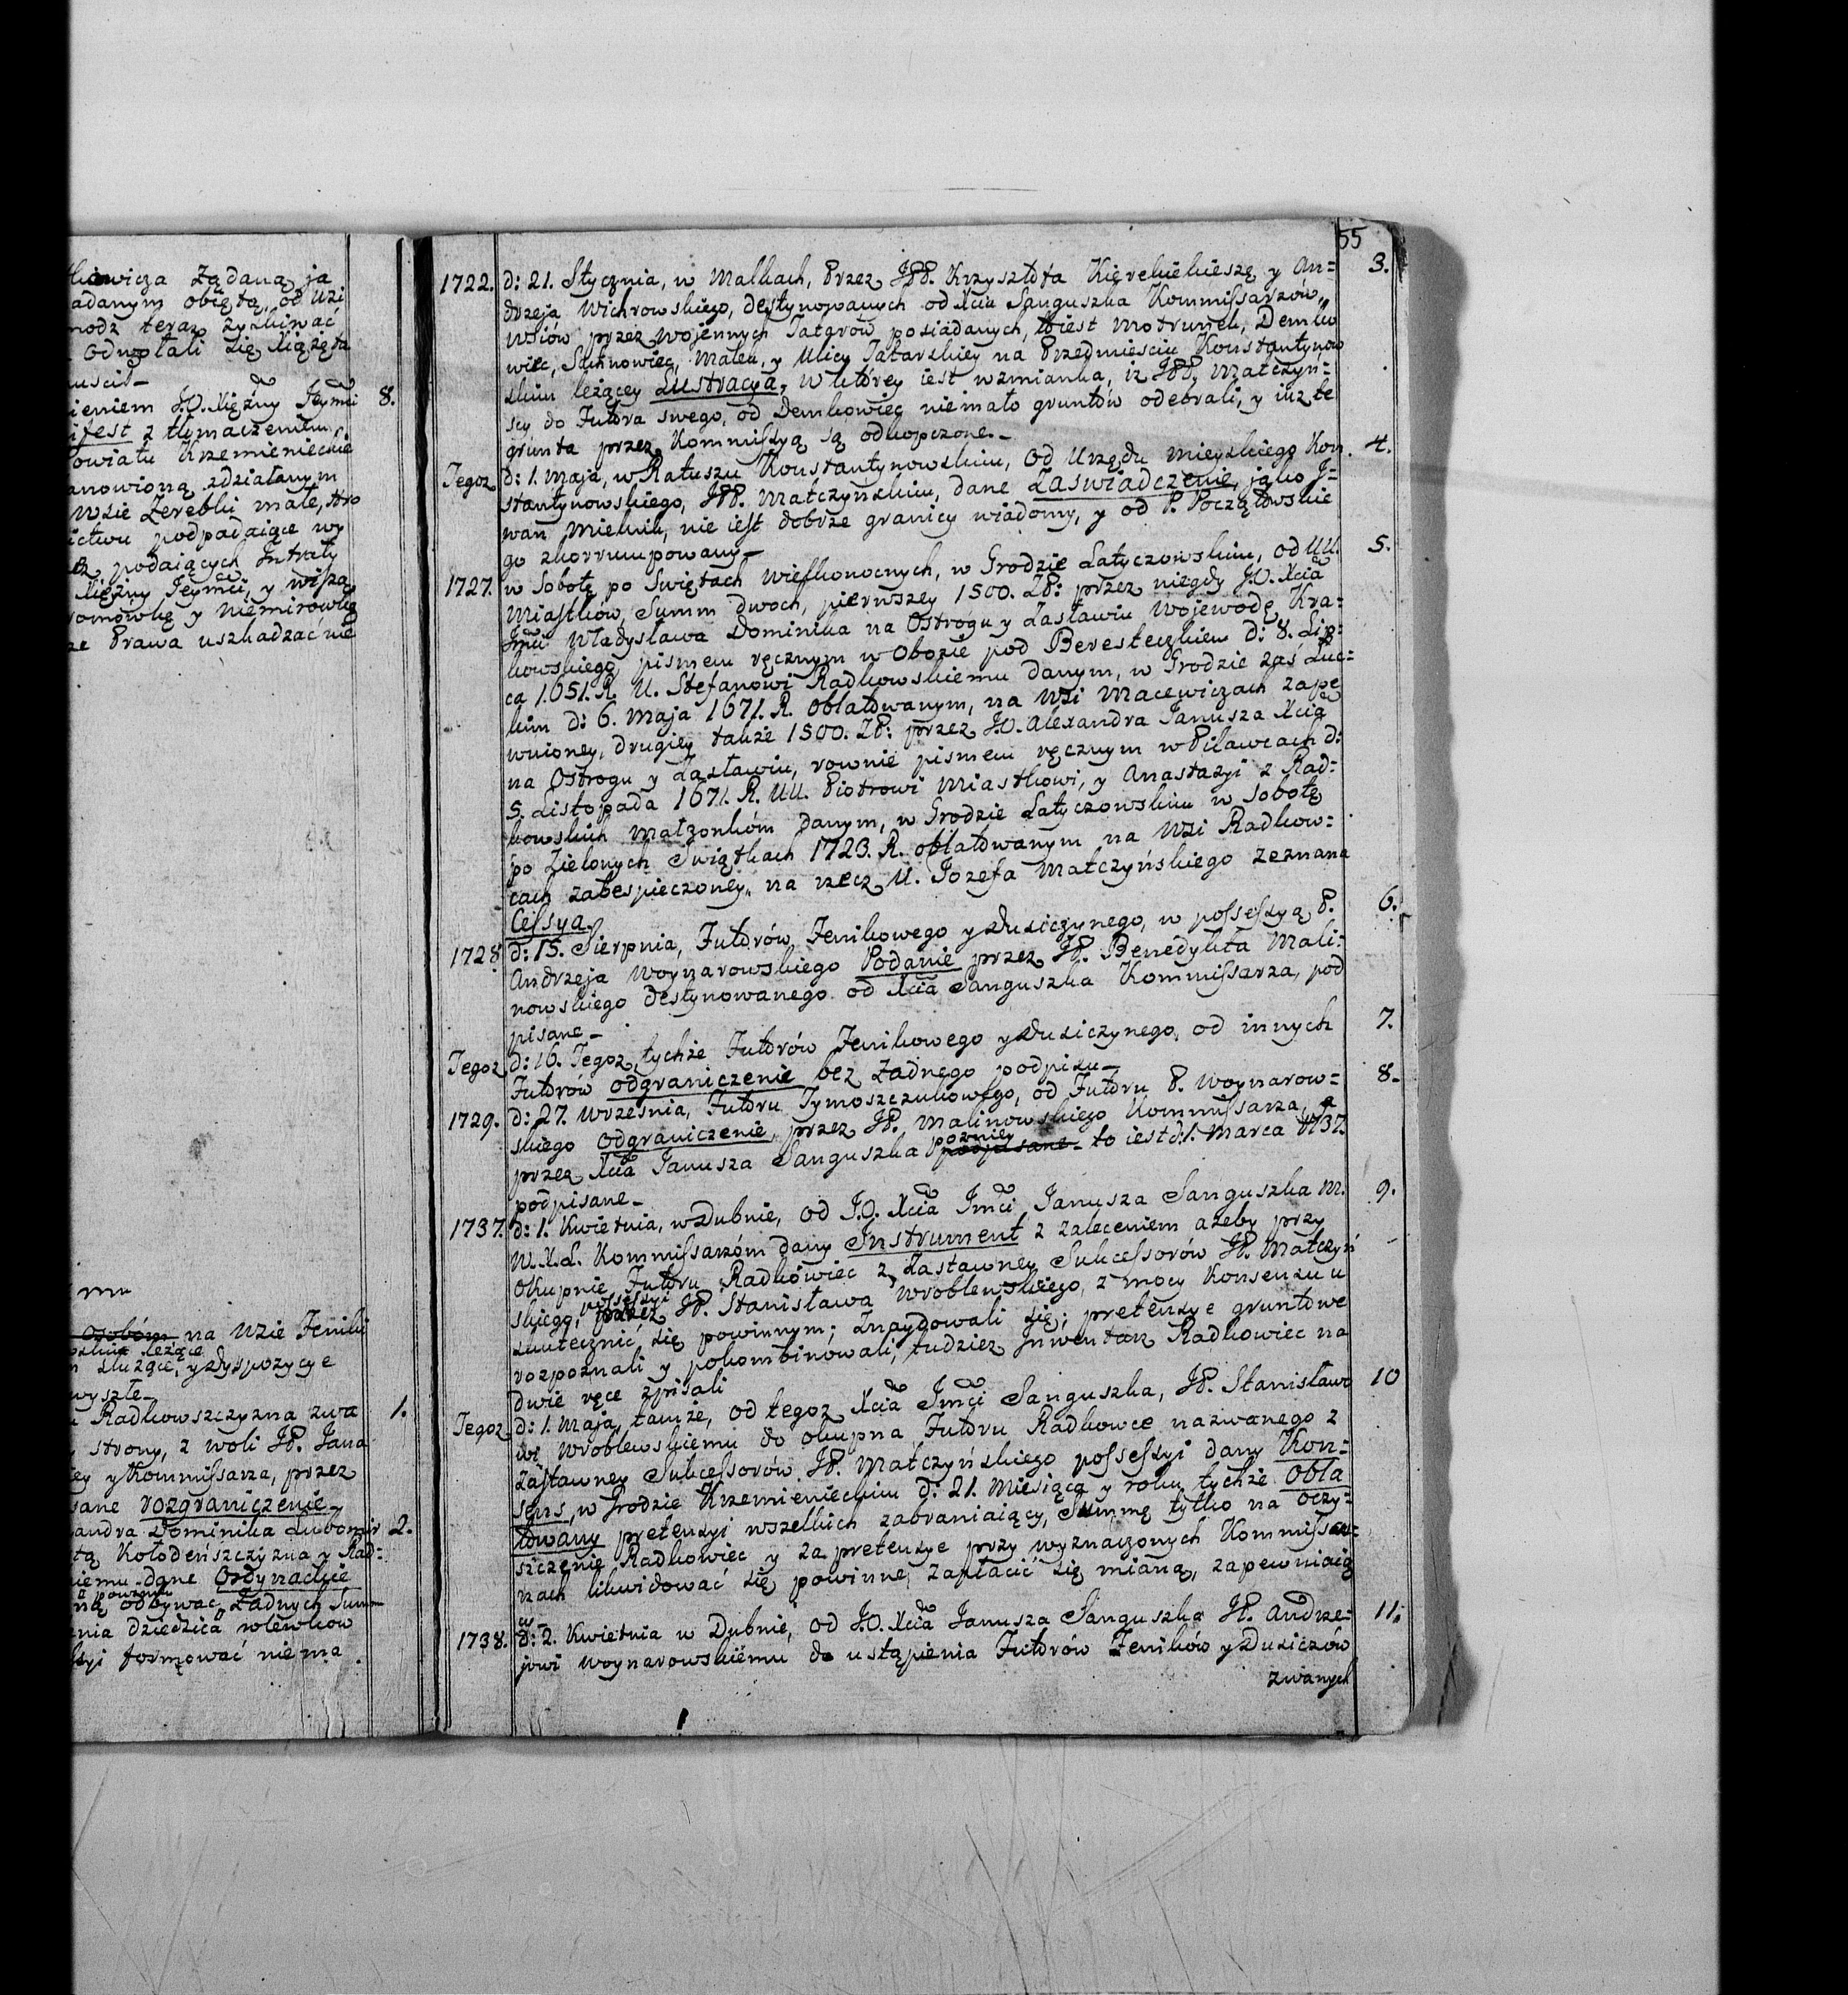 tkiewicza żądaną ja
adanym obiętą, od Wsi
modz teraz zyskiwać
Odwołali się Xiążęta
uscił_
ieniem J.O. Xiężny Jeymći 8.
ifest z tłumaczeniem,
owiatu Krzemieniecki
anowioną zdziałanym
Wsie Zerebki małe, Hro
ictwu podpadaiące wy
podaiących Intraty
Xiężny Jeymći, y wiszą
omówkę y Niemirówkę
ze Prawa uszkadzać nie
osobóm na Wsie Jenik
leżące
służące, y Dyspozycye
wyszłe_
Radkowszczyzna zwa 1.
strony, z woli JP. Jana
ey y Kommissarza, przez
sane rozgraniczenie_
andra Dominika Lubomir 2.
tą Kołodeńszczyzna y Rad=
iemu dane Ordynacyie
ną odbywać, Żadnych Sum
nia dziedzica wlewków
syi formować nie ma
55
1722. d: 21. Stycznia, w Malkach, Przez JPP. Krzysztofa Kierekiekieszę y An= 3.
drzeja Wichrowskiego, destynowanych od Xcia Sanguszka Kommissarzów,
Wsiów przez wojennych Tatarów posiadanych, to iest Motrunek, Demko
wiec, Suhnowiec, Malek, y Ulicy Tatarskiey na Przedmieściu Konstantynow
skim leżącey Lustracya, w którey iest wzmianka, iż JPP. Matczyń=
scy do Futora swego, od Demkowiec niemało gruntów odebrali, y iuż te
grunta przez Kommissyą są odkopczone._
Tegoż d: 1. Maja, w Ratuszu Konstantynowskim, od Urzędu mieyskiego Kon= 4.
stantynowskiego, JPP. Matczyńskim, dane Zaświadczenie, jako J=
wan Mielnik, nie iest dobrze granicy wiadomy, y od P. Początowskie
go zkorrumpowany_
1727. w Sobotę po Swiętach wielkonocnych, w Grodzie Latyczowskim, od UU. 5.
Miastków, Summ dwoch, pierwszey 1500. ZP: przez niegdy J.O. Xcia
Jmći Władysława Dominika na Ostrogu y Zasławiu Wojewodę Kra=
kowskiego, pismem ręcznym w Obozie pod Beresteczkiem d: 8. Lip=
ca 1651. R. U. Stefanowi Radkowskiemu danym, w Grodzie zaś Łuc=
kim d: 6. Maja 1671. R. oblatowanym, na Wsi Macewiczach zape
wnioney, drugiey także 1500. ZP: przez J.O. Alexandra Janusza Xcia
na Ostrogu y Zasławiu, rownie pismem ręcznym w Pilawcach d:
5. Listopada 1671. R. UU. Piotrowi Miastkowi, y Anastazyi z Rad=
kowskich Małżonkóm danym, w Grodzie Latyczowskim w Sobotę
po Zielonych Swiątkach 1723. R. oblatowanym na Wsi Radkow=
cach zabespieczoney, na rzecz U. Jozefa Matczyńskiego zeznana
Cessya.
1728 d: 15. Sierpnia, Futorów Jenikowego y Dusiczynego, w possessyą P. 6.
Andrzeja Woynarowskiego Podanie przez JP. Benedykta Mali=
nowskiego destynowanego od Xcia Sanguszka Kommissarza, pod
pisane_
Tegoż d: 16. Tegoż, tychże Futorów Jenikowego y Dusiczynego, od innych 7.
Futorów odgraniczenie bez żadnego podpisu_
1729. d: 27. Września, Futoru Tymoszczukowego, od Futoru P. Woynarow= 8_
skiego odgraniczenie, przez JP. Malinowskiego Kommissarza, a
przez Xcia Janusza Sanguszka poźniey podpisane to iest d: 1. Marca 1737.
podpisane_
1737. d: 1. Kwietnia, w Dubnie, od J.O. Xcia Jmći Janusza Sanguszka M. 9.
W.X.L. Kommissarzóm dany Instrument z zaleceniem ażeby przy
Okupnie Futoru Radkowiec z Zastawney Sukcessorów JP. Matczyń
skiego, possessyi przez JP. Stanisława Wroblewskiego, z mocy Konsensu u
skutecznić się powinnym; Znaydowali się; pretensye gruntowe
rozpoznali y pokombinowali, tudzież Inwentarz Radkowiec na
dwie ręce spisali
Tegoż d: 1. Maja, tamże, od tegoż Xcia Jmći Sanguszka, JP. Stanisławo 10
wi Wroblewskiemu do okupna Futoru Radkowce nazwanego z
Zastawney Sukcessorów JP. Matczyńskiego possessyi dany Kon=
sens, w Grodzie Krzemienieckim d: 21. Miesiąca y roku tychże obla
towany pretensyi wszelkich zabraniaiący, Summę tylko na oczy=
szczenie Radkowiec y za pretensye przy wyznaczonych Kommissar=
zach likwidować się powinne, zapłacić się mianą, zapewniaią
cy_
1738. d: 2. Kwietnia w Dubnie, od J.O. Xcia Janusza Sanguszka JP. Andrze= 11.
jowi Woynarowskiemu do ustąpienia Futorów Jeników y Dusiczów
zwanych